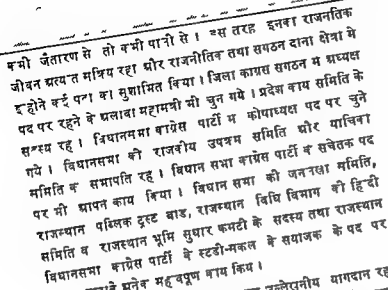 कभी जैतारण से तो कभी पाली से । इस तरह इनका राजनतिक
जीवन अत्यत सक्रिय रहा और राजनीतिक तथा सगठन दाना क्षेत्रा मे
इ होने कई पदा का सुशाभित किया । जिला काग्रस सगठन म अध्यक्ष
पद पर रहने के अलावा महामत्री भी चुन गये । प्रदेश काय समिति के
सदस्य रह । विधानसभा काग्रेस पार्टी म कोपाध्यक्ष पद पर चुने
गये । विधानसभा की राजकीय उपक्रम समिति और याचिका
समिति के सभापति रह । विधान सभा काग्रेस पार्टी के सचेतक पद
पर भी आपन काय किया । विधान सभा की जनलेखा समिति,
राजस्थान पब्लिक ट्रस्ट बाड, राजस्थान विधि विभाग की हिन्दी
समिति व राजस्थान भूमि सुधार कमटी के सदस्य तथा राजस्थान
विधानसभा काग्रेस पार्टी के स्टडी-सकल के सयोजक के पद पर
अनेक महत्वपूण काय किय ।
उल्लेखनीय यागदान रहा